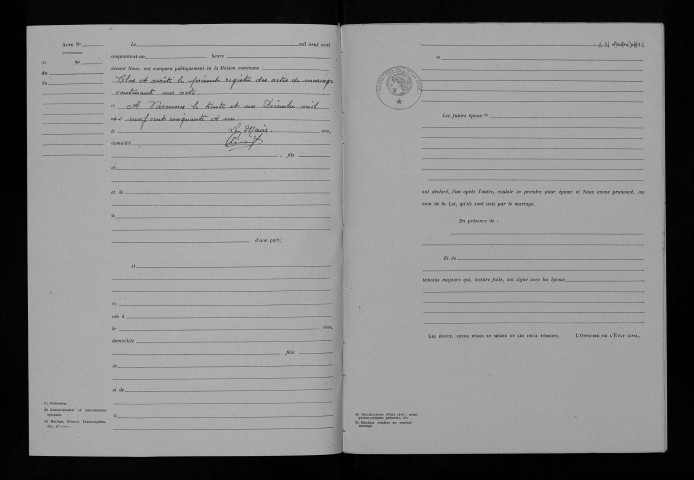 Acte N°
Le mil neuf cent
cinquante-et-un heure
N°
du
de
devant Nous, ont comparu publiquement en la Maison commune
Clos et arrêté le présent registre des actes de mariage
contenant un acte
A Varennes le trente et un Décembre mil
neuf cent cinquante et un.
le Le Maire. mil
domicilié
, fils
de
et de
d'une part;
et
née à
le mil
domiciliée
fille
de
et de
(1) Profession.
(3) Mariage, Divorce, Transcription,
etc.,
d'autre part ;
Les futurs époux
ont déclaré, l'un après l'autre, vouloir se prendre pour époux et Nous avons prononcé, au
nom de la Loi, qu'ils sont unis par le mariage.
En présence de :
Et de
témoins majeurs qui, lecture faite, ont signé avec les époux
LES ÉPOUX, LEURS PÈRES ET MÈRES ET LES DEUX TÉMOINS, L'OFFICIER DE L'ÉTAT CIVIL,